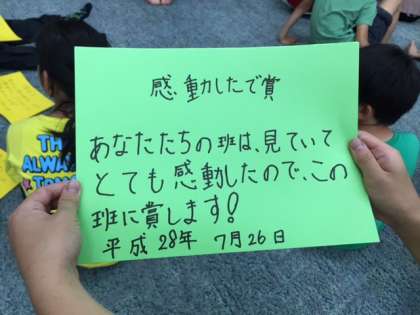 感動したで賞
あなたたちの班は、見ていて
とても感動したので、この
班に賞します!
平成28年 7月26日
THE
ALWAY